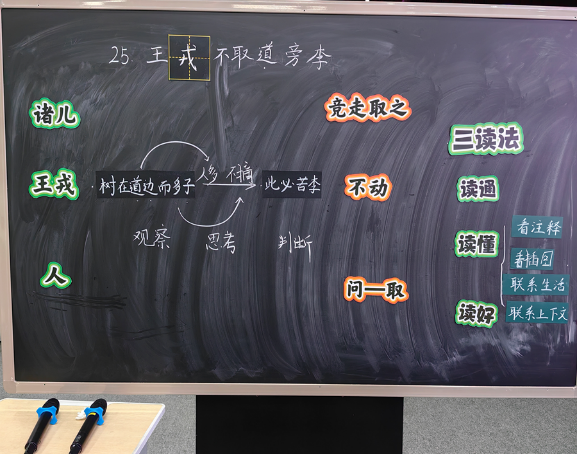 25 王戎不取道旁李
诸儿 竞走取之
三读法
人多 不摘
王戎 树在道边而多子 此必苦李 不动 读通
观察 思考 判断
读懂 看注释
看插图
联系生活
人 问—取
读好 联系上下文